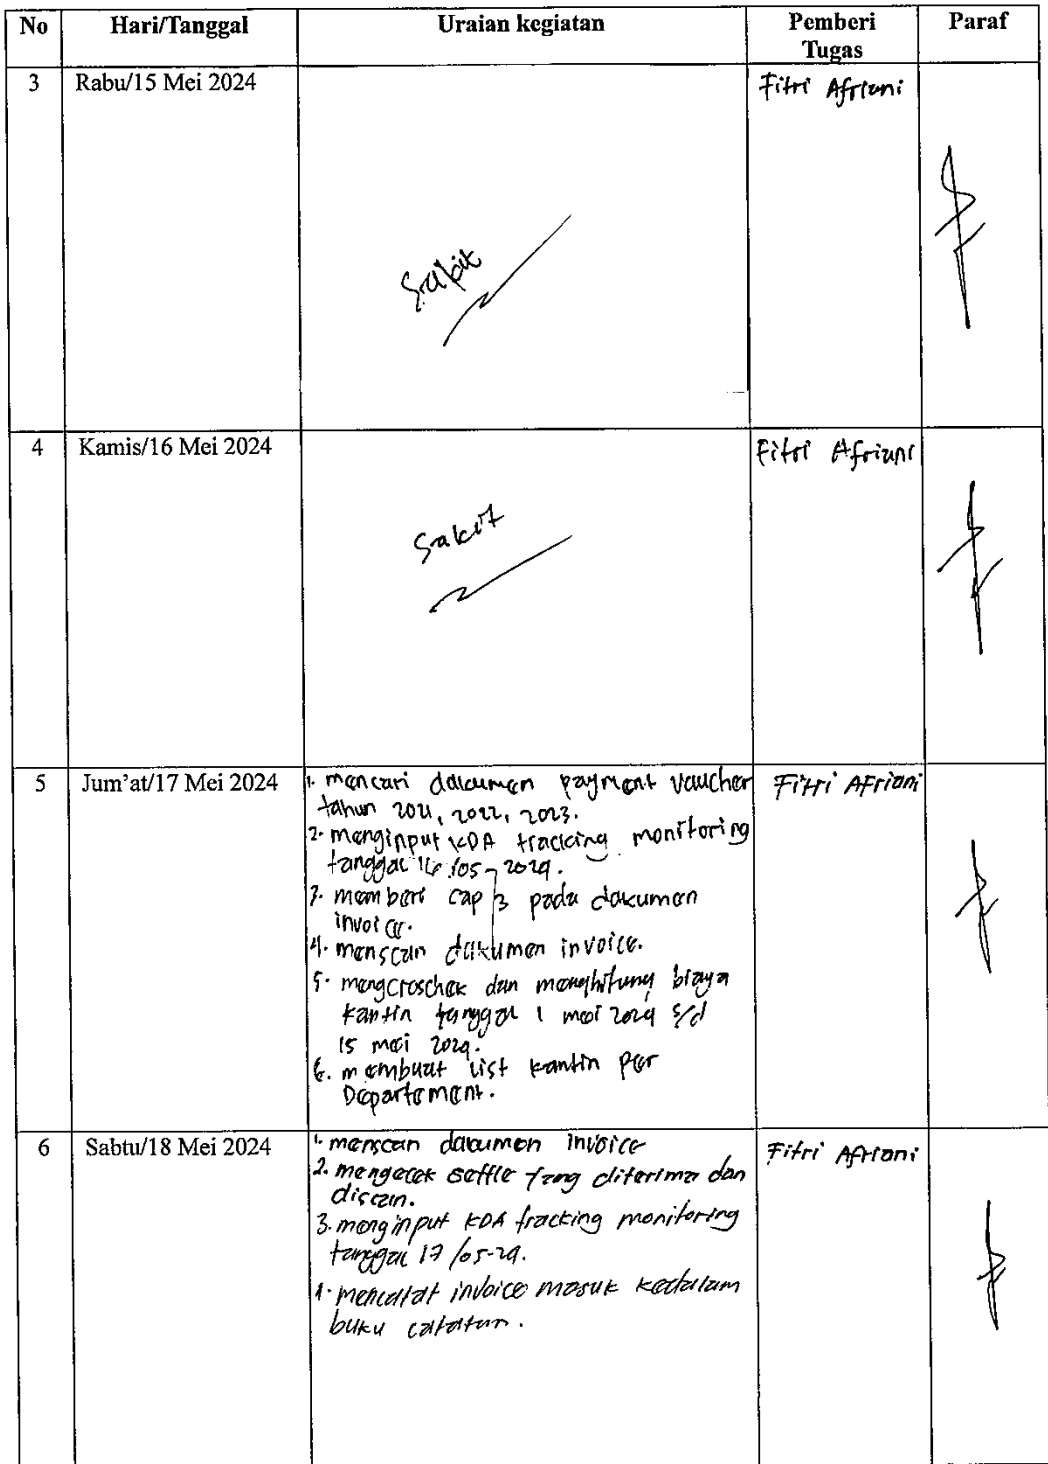 No Hari/Tanggal Uraian kegiatan Pemberi Tugas Paraf
3 Rabu/15 Mei 2024 Fitri Afriani
Sakit
4 Kamis/16 Mei 2024 Fitri Afriani
Sakit
5 Jum'at/17 Mei 2024 Fitri Afriani
1. mencari dokumen payment voucher
tahun 2021, 2022, 2023.
2. menginput KDA tracking monitoring
tanggal 16/05-2024.
3. memberi cap 3 pada dokumen
invoice.
4. menscan dokumen invoice.
5. mengcroschek dan menghitung biaya
kantin tanggal 1 mei 2024 s/d
15 mei 2024.
6. membuat list kantin per
Departement.
6 Sabtu/18 Mei 2024 Fitri Afriani
1. menscan dokumen invoice
2. mengecek settle yang diterima dan
discan.
3. menginput KDA tracking monitoring
tanggal 17/05-24.
4. mencatat invoice masuk kedalam
buku catatan.